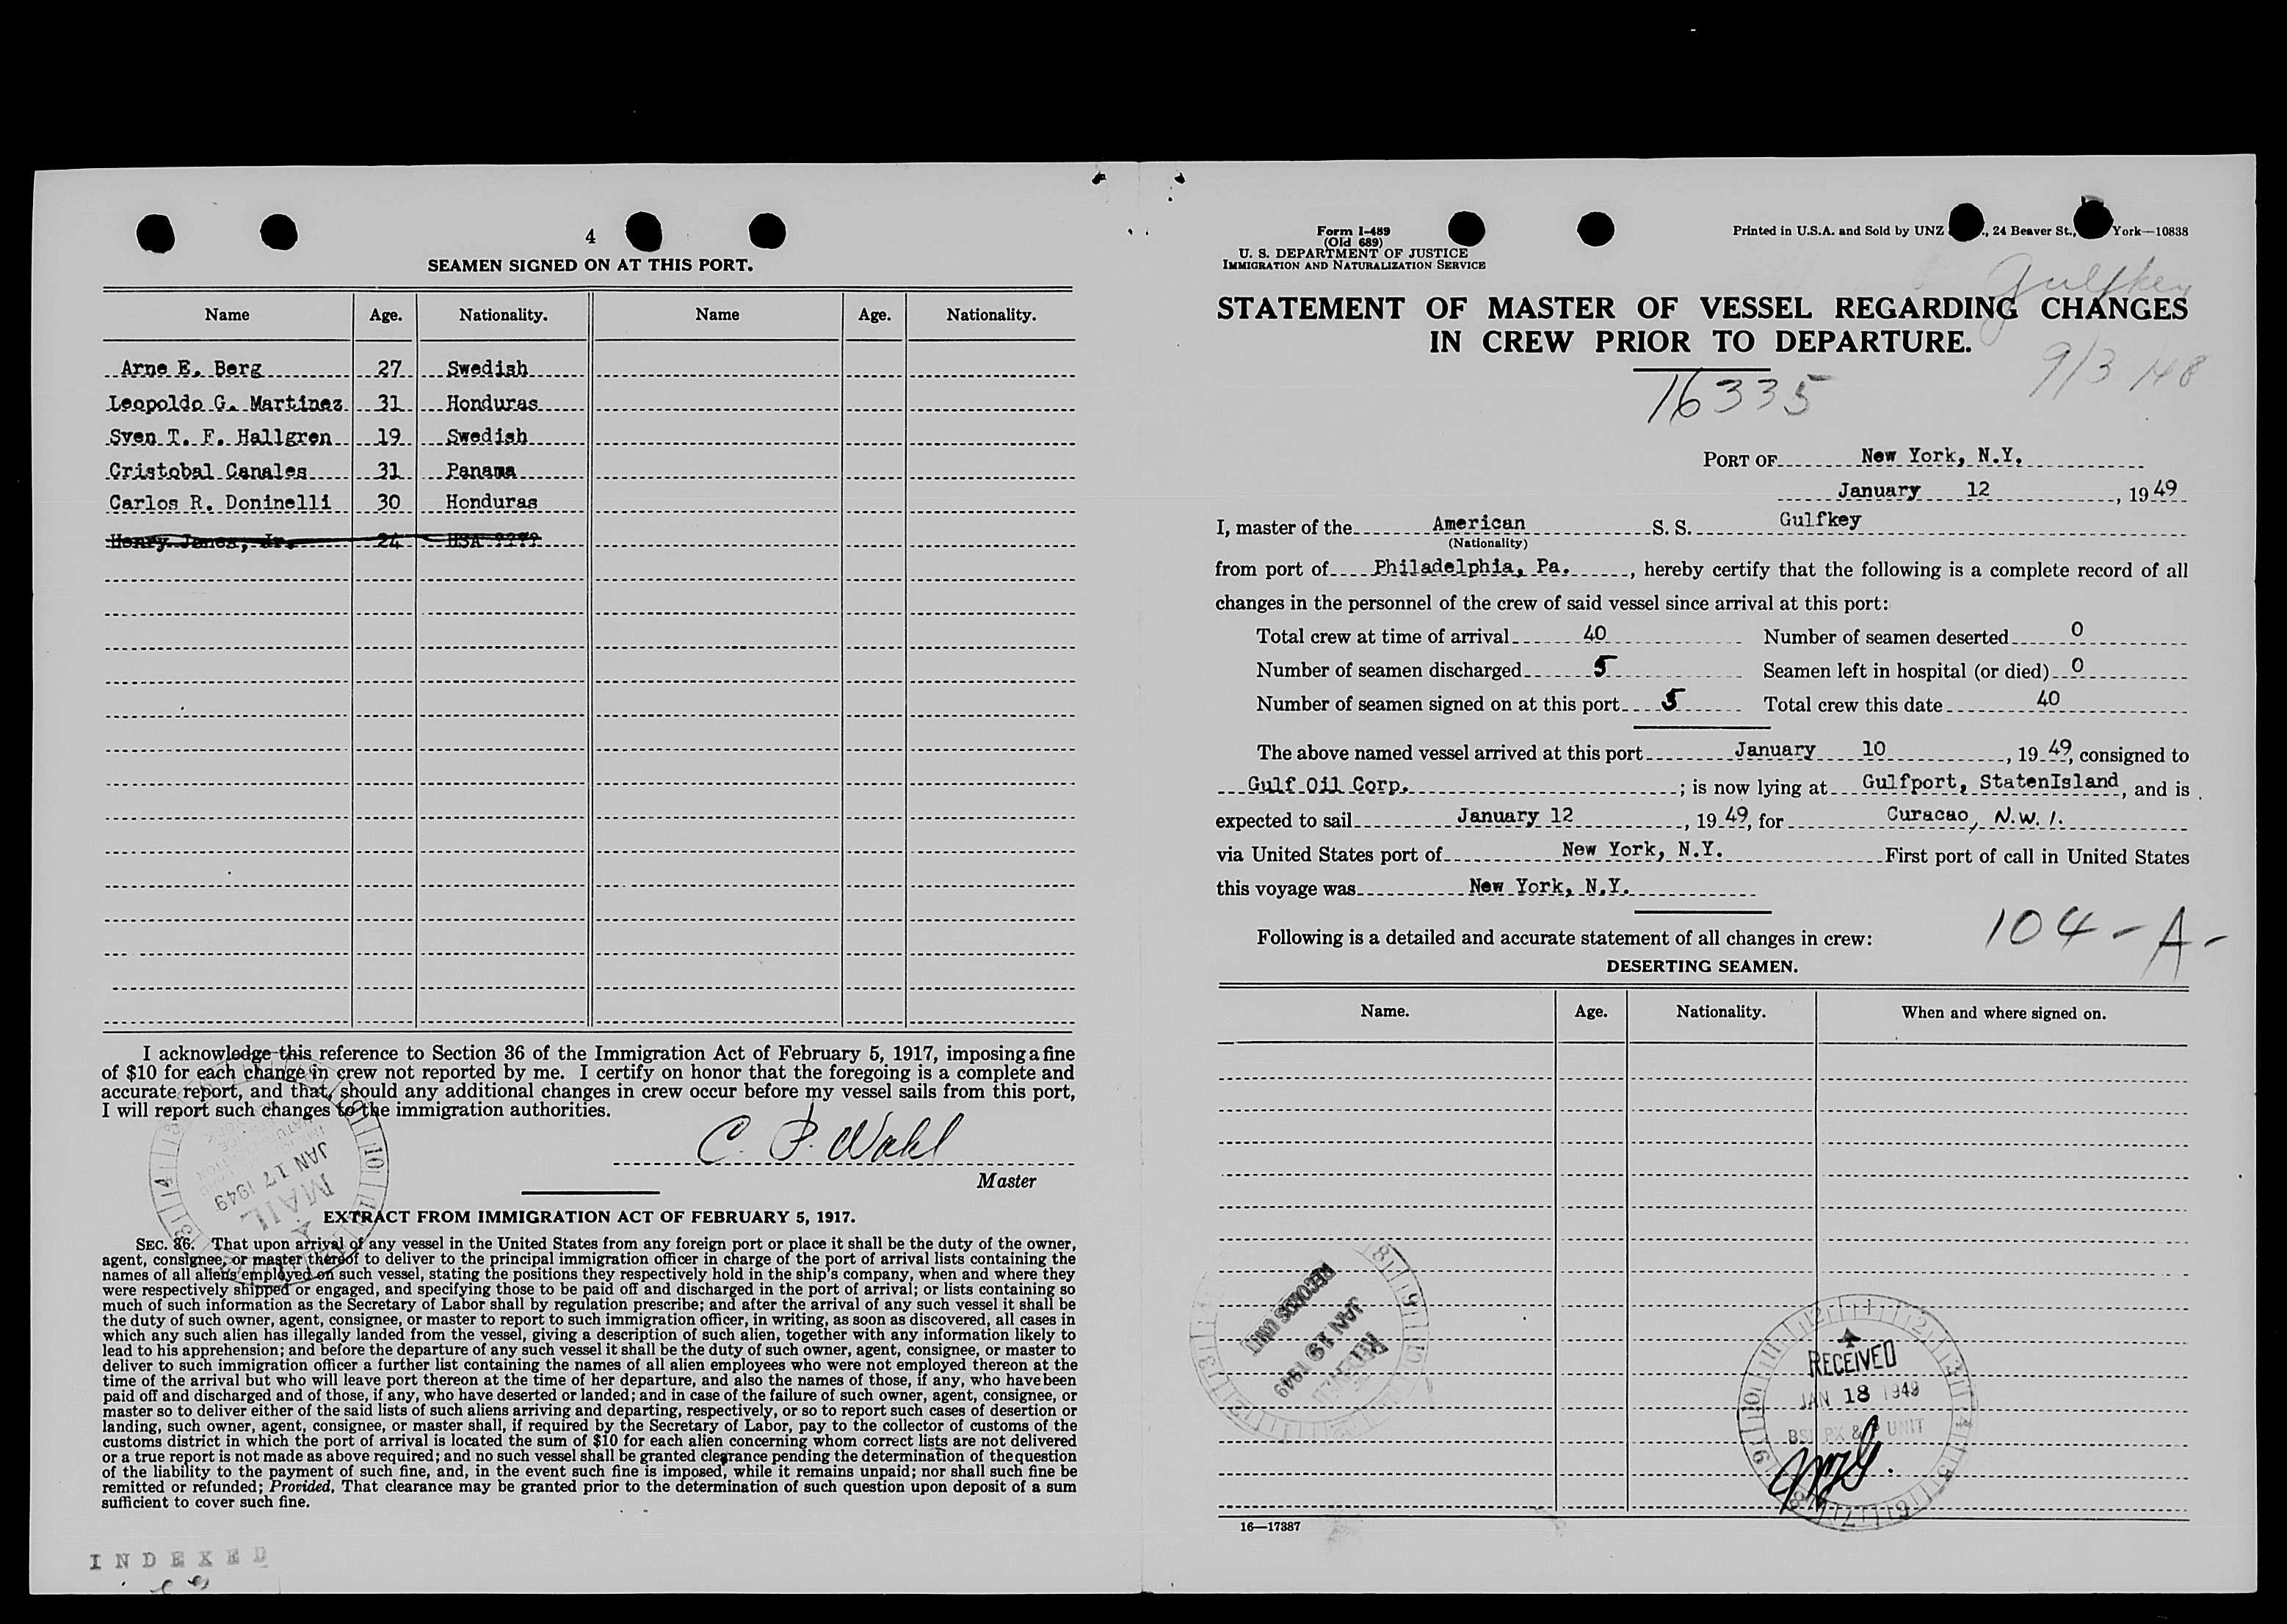 4
SEAMEN SIGNED ON AT THIS PORT.
Name Age. Nationality. Name Age. Nationality.
Arne E. Berg 27 Swedish
Leopoldo G. Martinez 31 Honduras
Sven T. F. Hallgren 19 Swedish
Cristobal Canales 31 Panama
Carlos R. Doninelli 30 Honduras
Henry Jones, Jr. 24 USA ????
I acknowledge this reference to Section 36 of the Immigration Act of February 5, 1917, imposing a fine
of $10 for each change in crew not reported by me. I certify on honor that the foregoing is a complete and
accurate report, and that, should any additional changes in crew occur before my vessel sails from this port,
I will report such changes to the immigration authorities.
C. P. Wahl
Master
JAN 17 1949
MAIL
EXTRACT FROM IMMIGRATION ACT OF FEBRUARY 5, 1917.
SEC. 36. That upon arrival of any vessel in the United States from any foreign port or place it shall be the duty of the owner,
agent, consignee, or master thereof to deliver to the principal immigration officer in charge of the port of arrival lists containing the
names of all aliens employed on such vessel, stating the positions they respectively hold in the ship's company, when and where they
were respectively shipped or engaged, and specifying those to be paid off and discharged in the port of arrival; or lists containing so
much of such information as the Secretary of Labor shall by regulation prescribe; and after the arrival of any such vessel it shall be
the duty of such owner, agent, consignee, or master to report to such immigration officer, in writing, as soon as discovered, all cases in
which any such alien has illegally landed from the vessel, giving a description of such alien, together with any information likely to
lead to his apprehension; and before the departure of any such vessel it shall be the duty of such owner, agent, consignee, or master to
deliver to such immigration officer a further list containing the names of all alien employees who were not employed thereon at the
time of the arrival but who will leave port thereon at the time of her departure, and also the names of those, if any, who have been
paid off and discharged and of those, if any, who have deserted or landed; and in case of the failure of such owner, agent, consignee, or
master so to deliver either of the said lists of such aliens arriving and departing, respectively, or so to report such cases of desertion or
landing, such owner, agent, consignee, or master shall, if required by the Secretary of Labor, pay to the collector of customs of the
customs district in which the port of arrival is located the sum of $10 for each alien concerning whom correct lists are not delivered
or a true report is not made as above required; and no such vessel shall be granted clearance pending the determination of the question
of the liability to the payment of such fine, and, in the event such fine is imposed, while it remains unpaid; nor shall such fine be
remitted or refunded; Provided, That clearance may be granted prior to the determination of such question upon deposit of a sum
sufficient to cover such fine.
INDEXED
Form I-489
(Old 689)
U. S. DEPARTMENT OF JUSTICE
IMMIGRATION AND NATURALIZATION SERVICE
Printed in U.S.A. and Sold by UNZ ., 24 Beaver St., York—10838
Gulfkey
STATEMENT OF MASTER OF VESSEL REGARDING CHANGES
IN CREW PRIOR TO DEPARTURE.
9/3/48
16335
PORT OF New York, N.Y.
January 12, 1949
I, master of the American S. S. Gulfkey
(Nationality)
from port of Philadelphia, Pa., hereby certify that the following is a complete record of all
changes in the personnel of the crew of said vessel since arrival at this port:
Total crew at time of arrival 40 Number of seamen deserted 0
Number of seamen discharged 5 Seamen left in hospital (or died) 0
Number of seamen signed on at this port 5 Total crew this date 40
The above named vessel arrived at this port January 10, 1949, consigned to
Gulf Oil Corp.; is now lying at Gulfport, StatenIsland, and is
expected to sail January 12, 1949, for Curacao, N.W.I.
via United States port of New York, N.Y. First port of call in United States
this voyage was New York, N.Y.
104-A-
Following is a detailed and accurate statement of all changes in crew:
DESERTING SEAMEN.
Name. Age. Nationality. When and where signed on.
RECORDS UNIT
JAN 19 1949
RECEIVED
JAN 18 1949
UNIT
16—17387